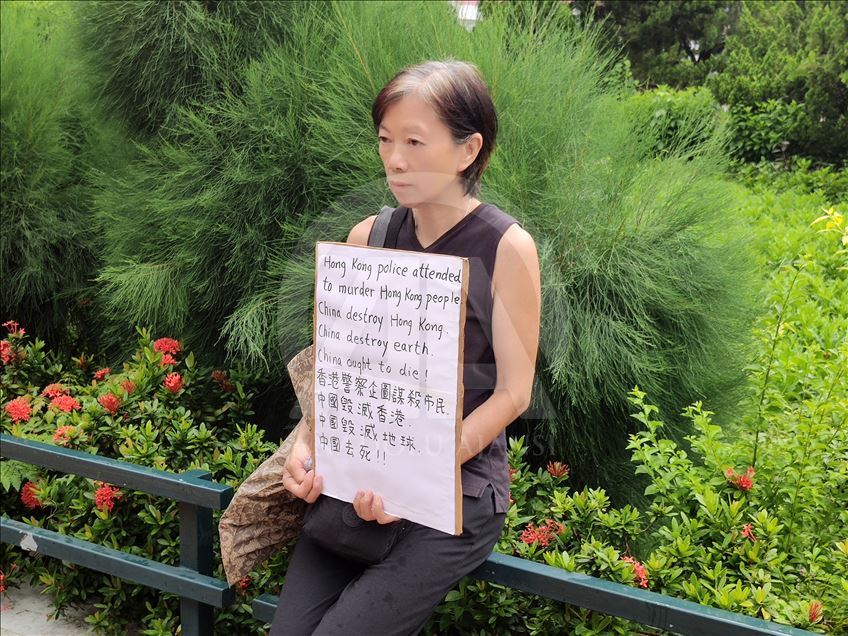 Hong Kong police attended
to murder Hong Kong people
China destroy Hong Kong.
China destroy earth.
China ought to die!
香港警察企圖謀殺市民.
中國毀滅香港.
中國毀滅地球.
中國去死!!